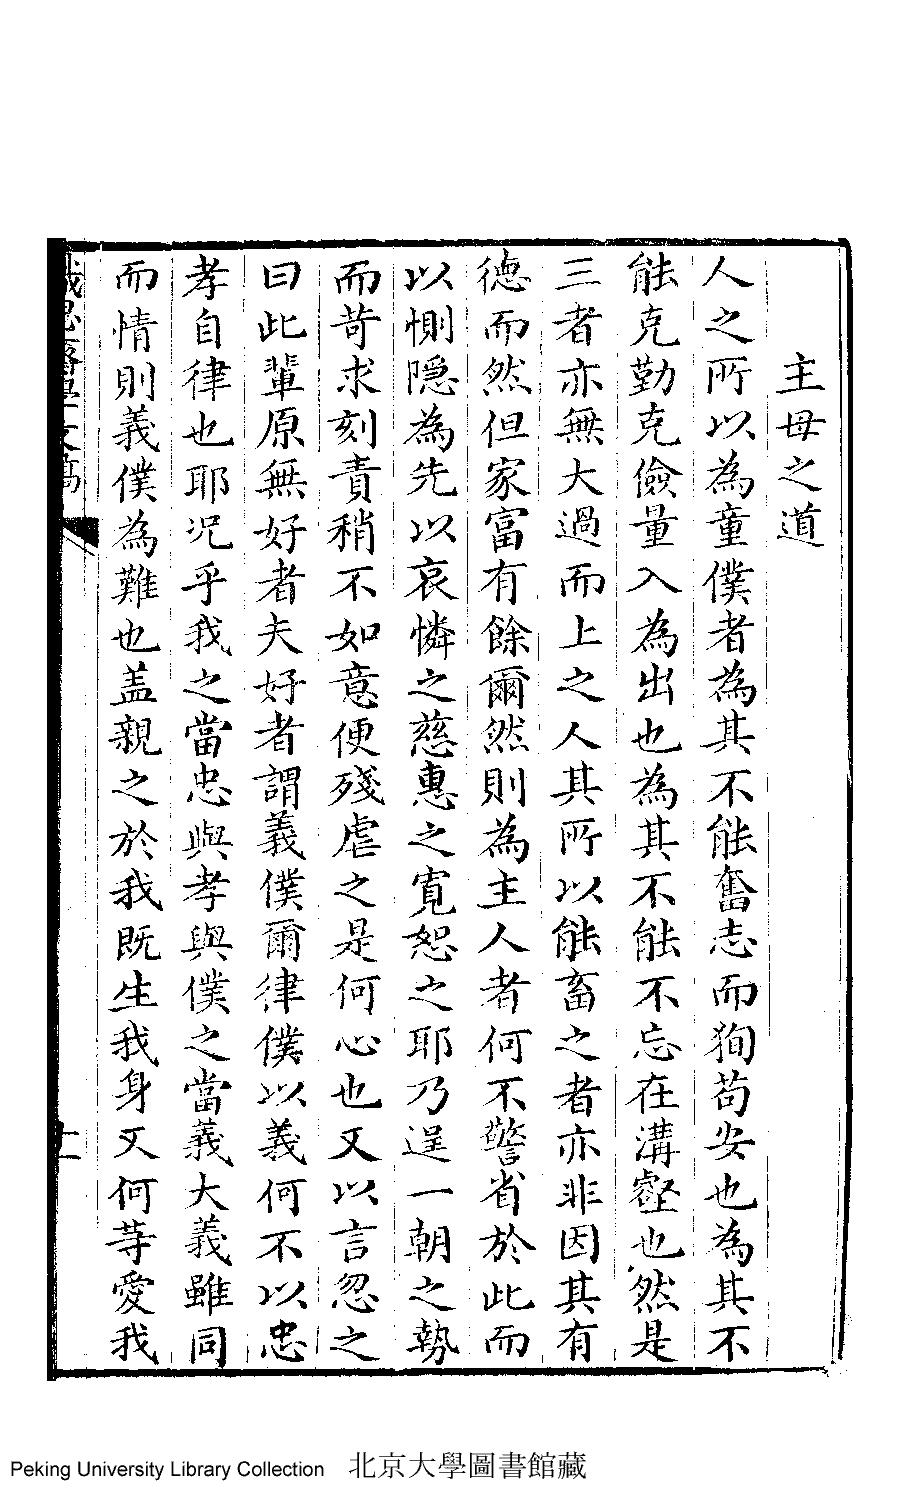 主母之道
人之所以為童僕者為其不能奮志而狥苟安也為其不
能克勤克儉量入為出也為其不能不忘在溝壑也然是
三者亦無大過而上之人其所以能畜之者亦非因其有
德而然但家富有餘爾然則為主人者何不警省於此而
以惻隱為先以哀憐之慈惠之寬恕之耶乃逞一朝之勢
而苛求刻責稍不如意便殘虐之是何心也又以言忽之
曰此輩原無好者夫好者謂義僕爾律僕以義何不以忠
孝自律也耶况乎我之當忠與孝與僕之當義大義雖同
而情則義僕為難也盖親之於我既生我身又何等愛我
Peking University Library Collection 北京大學圖書館藏